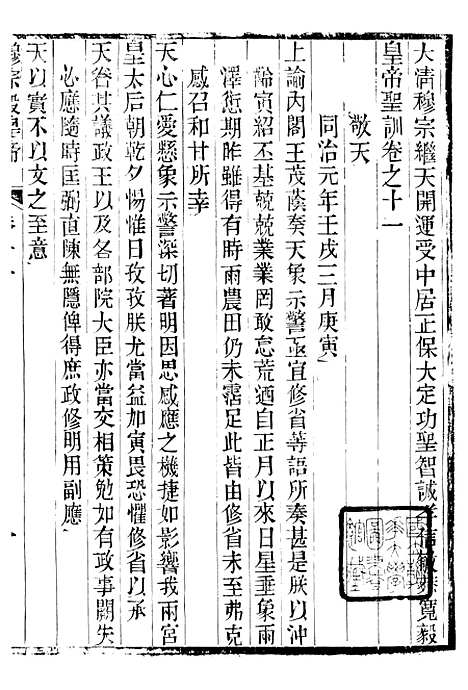 大清穆宗繼天開運受中居正保大定功聖智誠孝信敏恭寬毅
皇帝聖訓卷之十一
敬天
同治元年壬戌三月庚寅
上諭內閣王茂蔭奏天象示警亟宜修省等語所奏甚是朕以沖
齡寅紹丕基兢兢業業罔敢怠荒迺自正月以來日星垂象雨
澤愆期昨雖得有時雨農田仍未霑足此皆由修省至弗克
感召和甘所幸
天心仁愛懸象示警深切著明因思感應之機捷如影響我兩宮
皇太后朝乾夕惕惟日孜孜朕尤當益加寅畏恐懼修省以承
天眷其議政王以及各部院大臣亦當交相策勉如有政事闕失
必應隨時匡弼直陳無隱俾得庶政修明用副應
天以實不以文之至意
穆宗毅皇帝